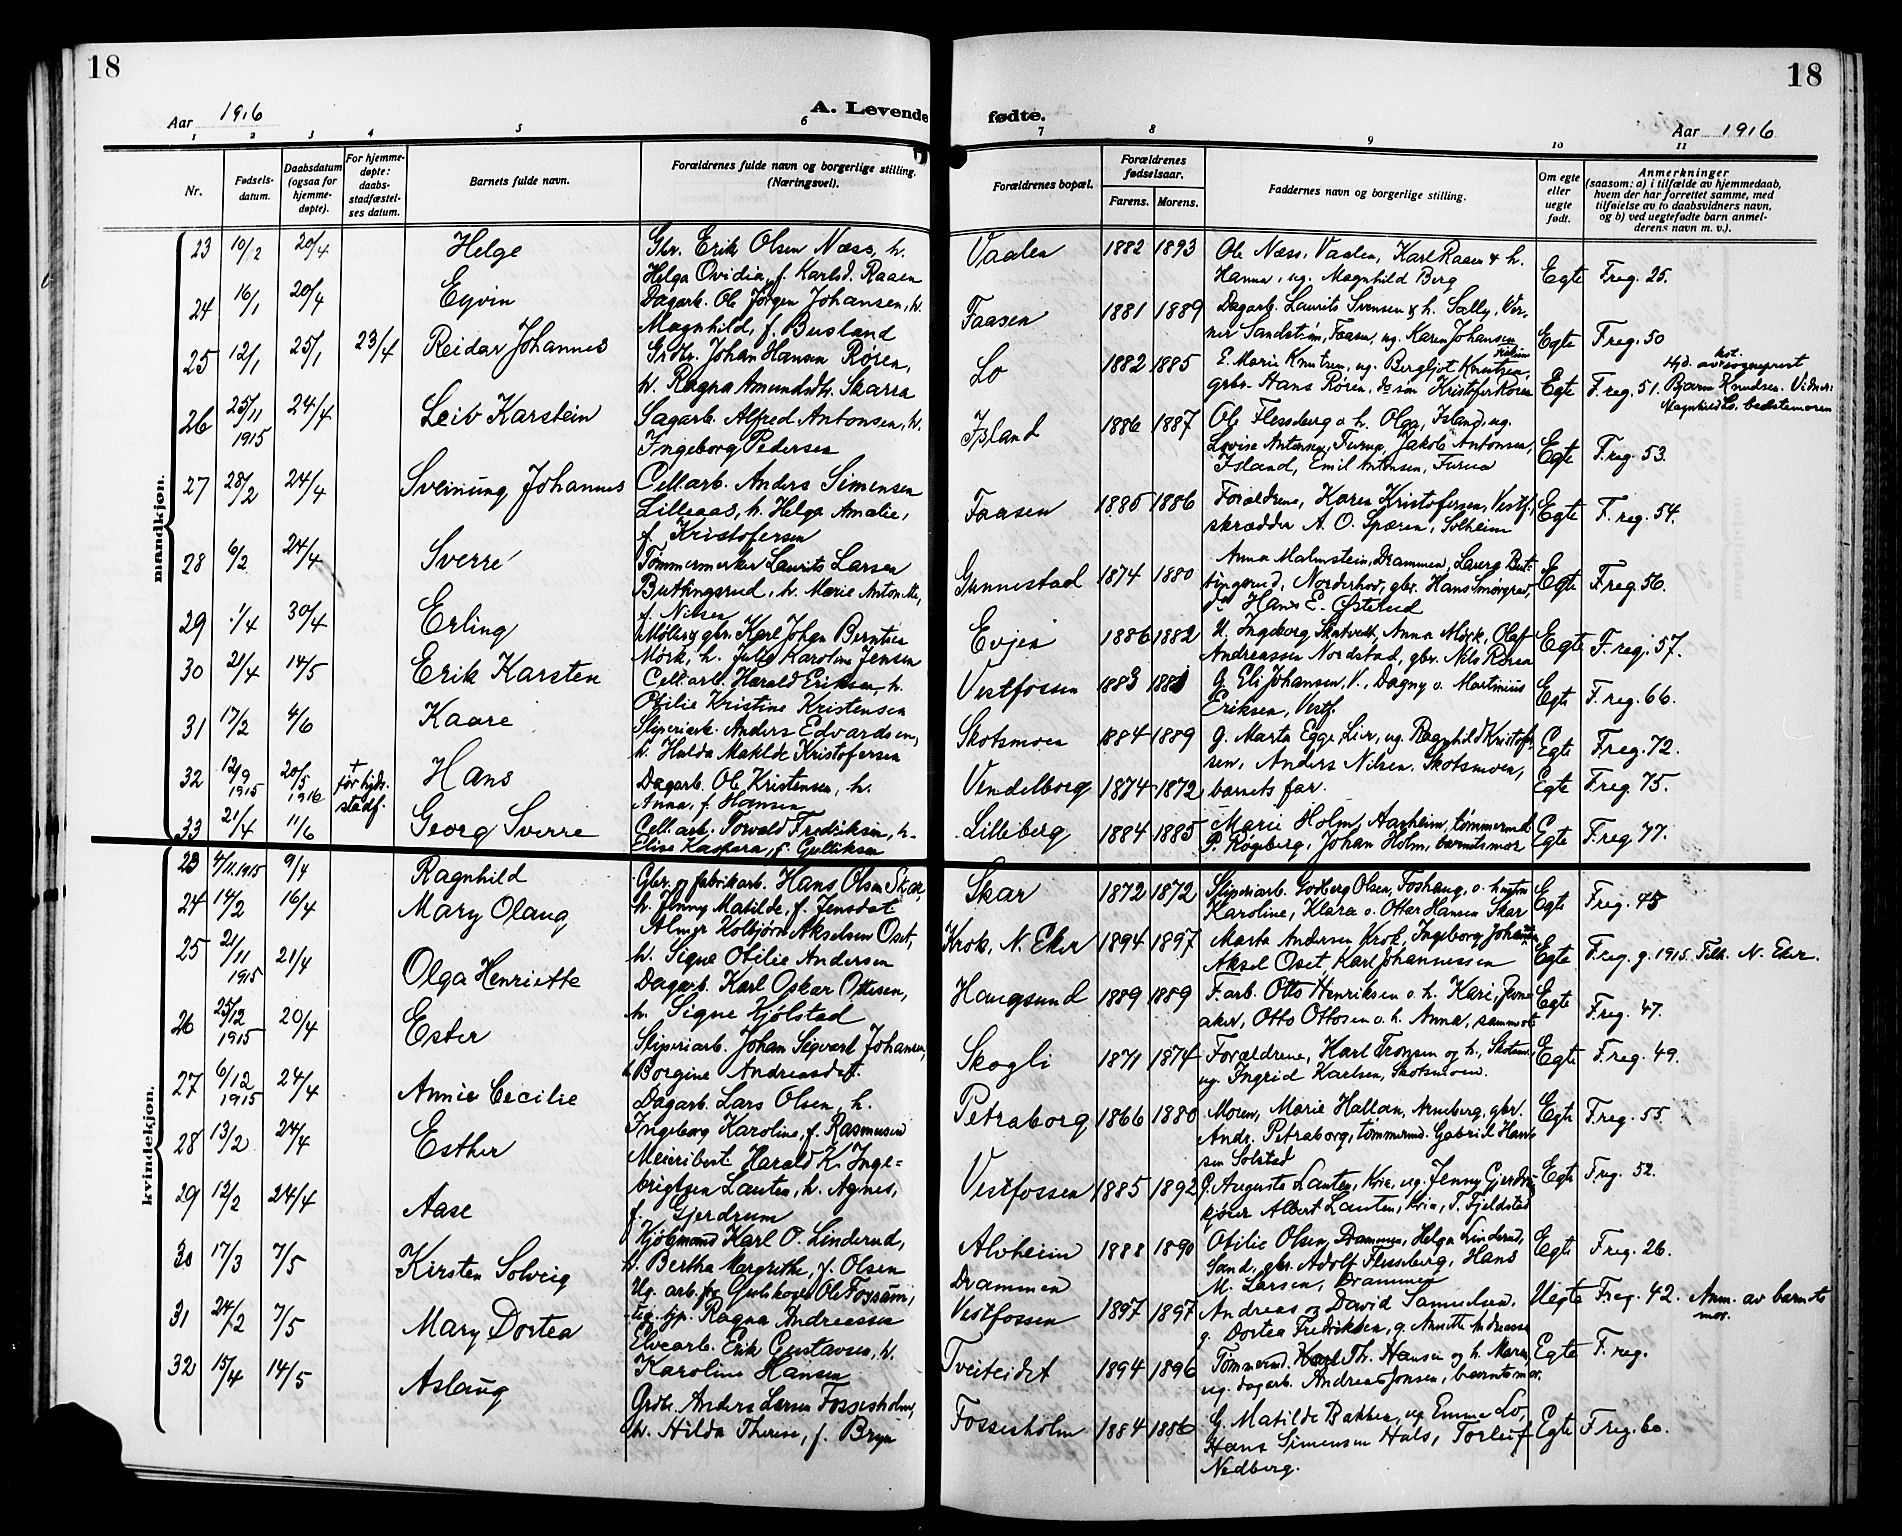 18
18
Aar 1916
A. Levende
fødte.
Aar 1916
1 2 3 4 5 6 7 8 9 10 11
Nr.
Fødsels-
datum.
Daabsdatum
(ogsaa for
hjemme-
døpte).
For hjemme-
døpte:
daabs-
stadfæstel-
ses datum.
Barnets fulde navn.
Forældrenes fulde navn og borgerlige stilling.
(Næringsvei).
Forældrenes bopæl.
Forældrenes
fødselsaar.
Farens. Morens.
Faddernes navn og borgerlige stilling.
Om egte
eller
uegte
født.
Anmerkninger
(saasom: a) i tilfælde av hjemmedaab,
hvem der har forrettet samme, med
tilføielse av to daabsvidners navn,
og b) ved uegtefødte barn anmel-
derens navn m. v.).
mandkjøn.
23 10/2 20/4 Helge
Gbr. Erik Olsen Næss, h.
Helga Ovidia, f. Karlsd. Raaen
Vaalen 1882 1893
Ole Næss, Vaalen, Karl Raaen & h.
Hanna, ug. Magnhild Berg
Egte F.reg. 25.
24 16/1 20/4 Eyvin
Dagarb. Ole Jørgen Johansen, h.
Magnhild, f. Busland
Faasen 1881 1889
Dagarb. Laurits Svensen & h. Sally, Ver-
ner Sandstrøm, Faasen, ug. Karen Johansen
Egte F.reg. 50
25 12/1 25/1 23/4 Reidar Johannes
Grdbr. Johan Hansen Røren,
h. Ragna Amundsdtr. Skarra
Lo 1882 1885
E. Marie Knutsen, ug. Bergljot Knutsen,
grbr. Hans Røren, do søn Kristofer Røren
Egte F.reg. 51.
Hjd. av kst. sogneprest
Bjarne Knudsen. Vidner:
Magnhild Lo, bedstemoren
26 25/11 1915 24/4 Leiv Karstein
Sagarb. Alfred Antonsen, h.
Ingeborg Pedersen
Island 1886 1887
Ole Flesseberg o h. Olga, Island, ug.
Lovise Antonsen, Furua, Jakob Antonsen,
Island, Emil Antonsen, Furua
Egte F.reg. 53.
27 28/2 24/4 Sveinung Johannes
Cell.arb. Anders Simensen
Lilleaas, h. Helga Amalie,
f. Kristofersen
Faasen 1885 1886
Forældrene, Karen Kristofersen, Vestf.,
skrædder A. O. Spæren, Solheim
Egte F.reg. 54.
28 6/2 24/4 Sverre
Tømmermerker Laurits Larsen
Buttingsrud, h. Marie Antonette,
f. Nilsen
Gunnestad 1874 1880
Anna Malmstein, Drammen, Laurg But-
tingsrud, Norderhov, gbr. Hans Smørgrav,
do Hans E. Ofstrud
Egte F.reg. 56.
29 1/4 30/4 Erling
Møller & gbr. Karl Johan Berntsen
Mørk, h. Julie Karoline Jensen
Evjen 1886 1882
U. Ingeborg Skatvedt, Anna Mørk, Olaf
Andreassen Nordstad, gbr. Nils Røren
Egte F.reg. 57.
30 21/4 14/5 Erik Karsten
Cell.arb. Harald Eriksen, h.
Otilie Kristine Kristensen
Vestfossen 1883 1881
G. Eli Johansen, V., Dagny o. Martinius
Eriksen, Vestf.
Egte F.reg. 66.
31 17/2 4/6 Kaare
Sliperiarb. Anders Edvardsen,
h. Hulda Maklde Kristofersen
Skotsmoen 1884 1889
G. Marta Egge, Lier, ug. Ragnhild Kristofer-
sen, Anders Nilsen, Skotsmoen,
Egte F.reg. 72.
32 12/9 1915 20/5 1916 + før hjds. stadf. Hans
Dagarb. Ole Kristensen, h.
Anna, f. Hansen
Vendelborg 1874 1872
barnets far.
Egte F.reg. 75.
33 21/4 11/6 Georg Sverre
Cell.arb. Torvald Fredriksen, h.
Elise Kaspara, f. Gulliksen
Lilleberg 1884 1885
Marie Holm, Aasheim, tømmermd.
P. Røgeberg, Johan Holm, barnets mor
Egte F.reg. 77.
kvindekjøn.
23 4/11.1915 9/4 Ragnhild
Gbr. og fabrikarb. Hans Olsen Skar,
h. Jenny Matilde, f. Jensdat.
Skar 1872 1872
Sliperiarb. Godberg Olsen, Foshaug, o. hustru
Karoline, Klara o. Ottar Hansen Skar
Egte F.reg. 45
24 14/2 16/4 Mary Olaug
Almer Kolbjørn Akselsen Oset,
h. Signe Otilie Andersen
Krok, N. Eker 1894 1897
Marta Andersen Krok, Ingeborg Johansen,
Aksel Oset, Karl Johannessen
Egte F.reg. 9. 1915. Tilh. N. Eker.
25 21/11 1915 21/4 Olga Henriette
Dagarb. Karl Oskar Ottesen,
h. Signe Kjølstad
Haugsund 1889 1889
F.arb. Otto Henriksen o. h. Kari, Jern-
aker, Otto Ottosen o. h. Anna, sammest.
Egte F.reg. 47.
26 25/12 1915 20/4 Ester
Sliperiarb. Johan Sigvart Johansen,
h. Borgine Andreasdat.
Skogli 1871 1874
Forældrene, Karl Tronsen og h., Skotsm.,
ug. Ingrid Karlsen, Skotsmoen.
Egte F.reg. 49.
27 6/12 1915 24/4 Annie Cecilie
Dagarb. Lars Olsen, h.
Ingeborg Karoline, f. Rasmussen
Petraborg 1866 1880
Moren, Marie Hallan, Arneberg, gbr.
Andr. Petraborg, tømmermd. Gabriel Han-
sen Solstad
Egte F.reg. 55.
28 13/2 24/4 Esther
Meieribest. Harald K. Inge-
brigtsen Lauten, h. Agnes,
f. Gjerdrum
Vestfossen 1885 1892
G. Augusta Lauten, Kria, ug. Jenny Gjerdrum,
kjører Albert Lauten, Kria, T. Fjeldstad
Egte F.reg. 52.
29 12/2 24/4 Aase
Kjøbmand Karl O. Linderud,
h. Bertha Margrethe, f. Olsen
Alvheim 1888 1890
Otilie Olsen, Drammen, Helga Linderud,
Sand, gbr. Adolf Flesseberg, Hans
M. Larsen, Drammen
Egte F.reg. 26.
30 17/3 7/5 Kirsten Solveig
Ug. arb. fra Gulskogen Ole Fossum,
ug. tjp. Ragna Andreassen
Drammen
Vestfossen 1897 1897
Andreas og David Samuelsen,
g. Dortea Fredriksen, g. Annette Andreassen
Uegte F.reg. 42. Anm. av barnets
mor.
31 24/2 7/5 Mary Dortea
Elvearb. Erik Gustavsen, h.
Karoline Hansen
Tveiteidet 1894 1896
Tømmermd. Karl Th. Hansen og h. Maren,
ug. dagarb. Andreas Jonsen, barnets mor.
Egte F.reg.
32 15/4 14/5 Aslaug
Grdbr. Anders Larsen Fossesholm,
h. Hilda Therese, f. Bryn
Fossesholm 1884 1886
G. Matilde Bakken, ug. Emma Lo,
Hans Simensen Hals, Torleif
Nedberg.
Egte F.reg. 60.